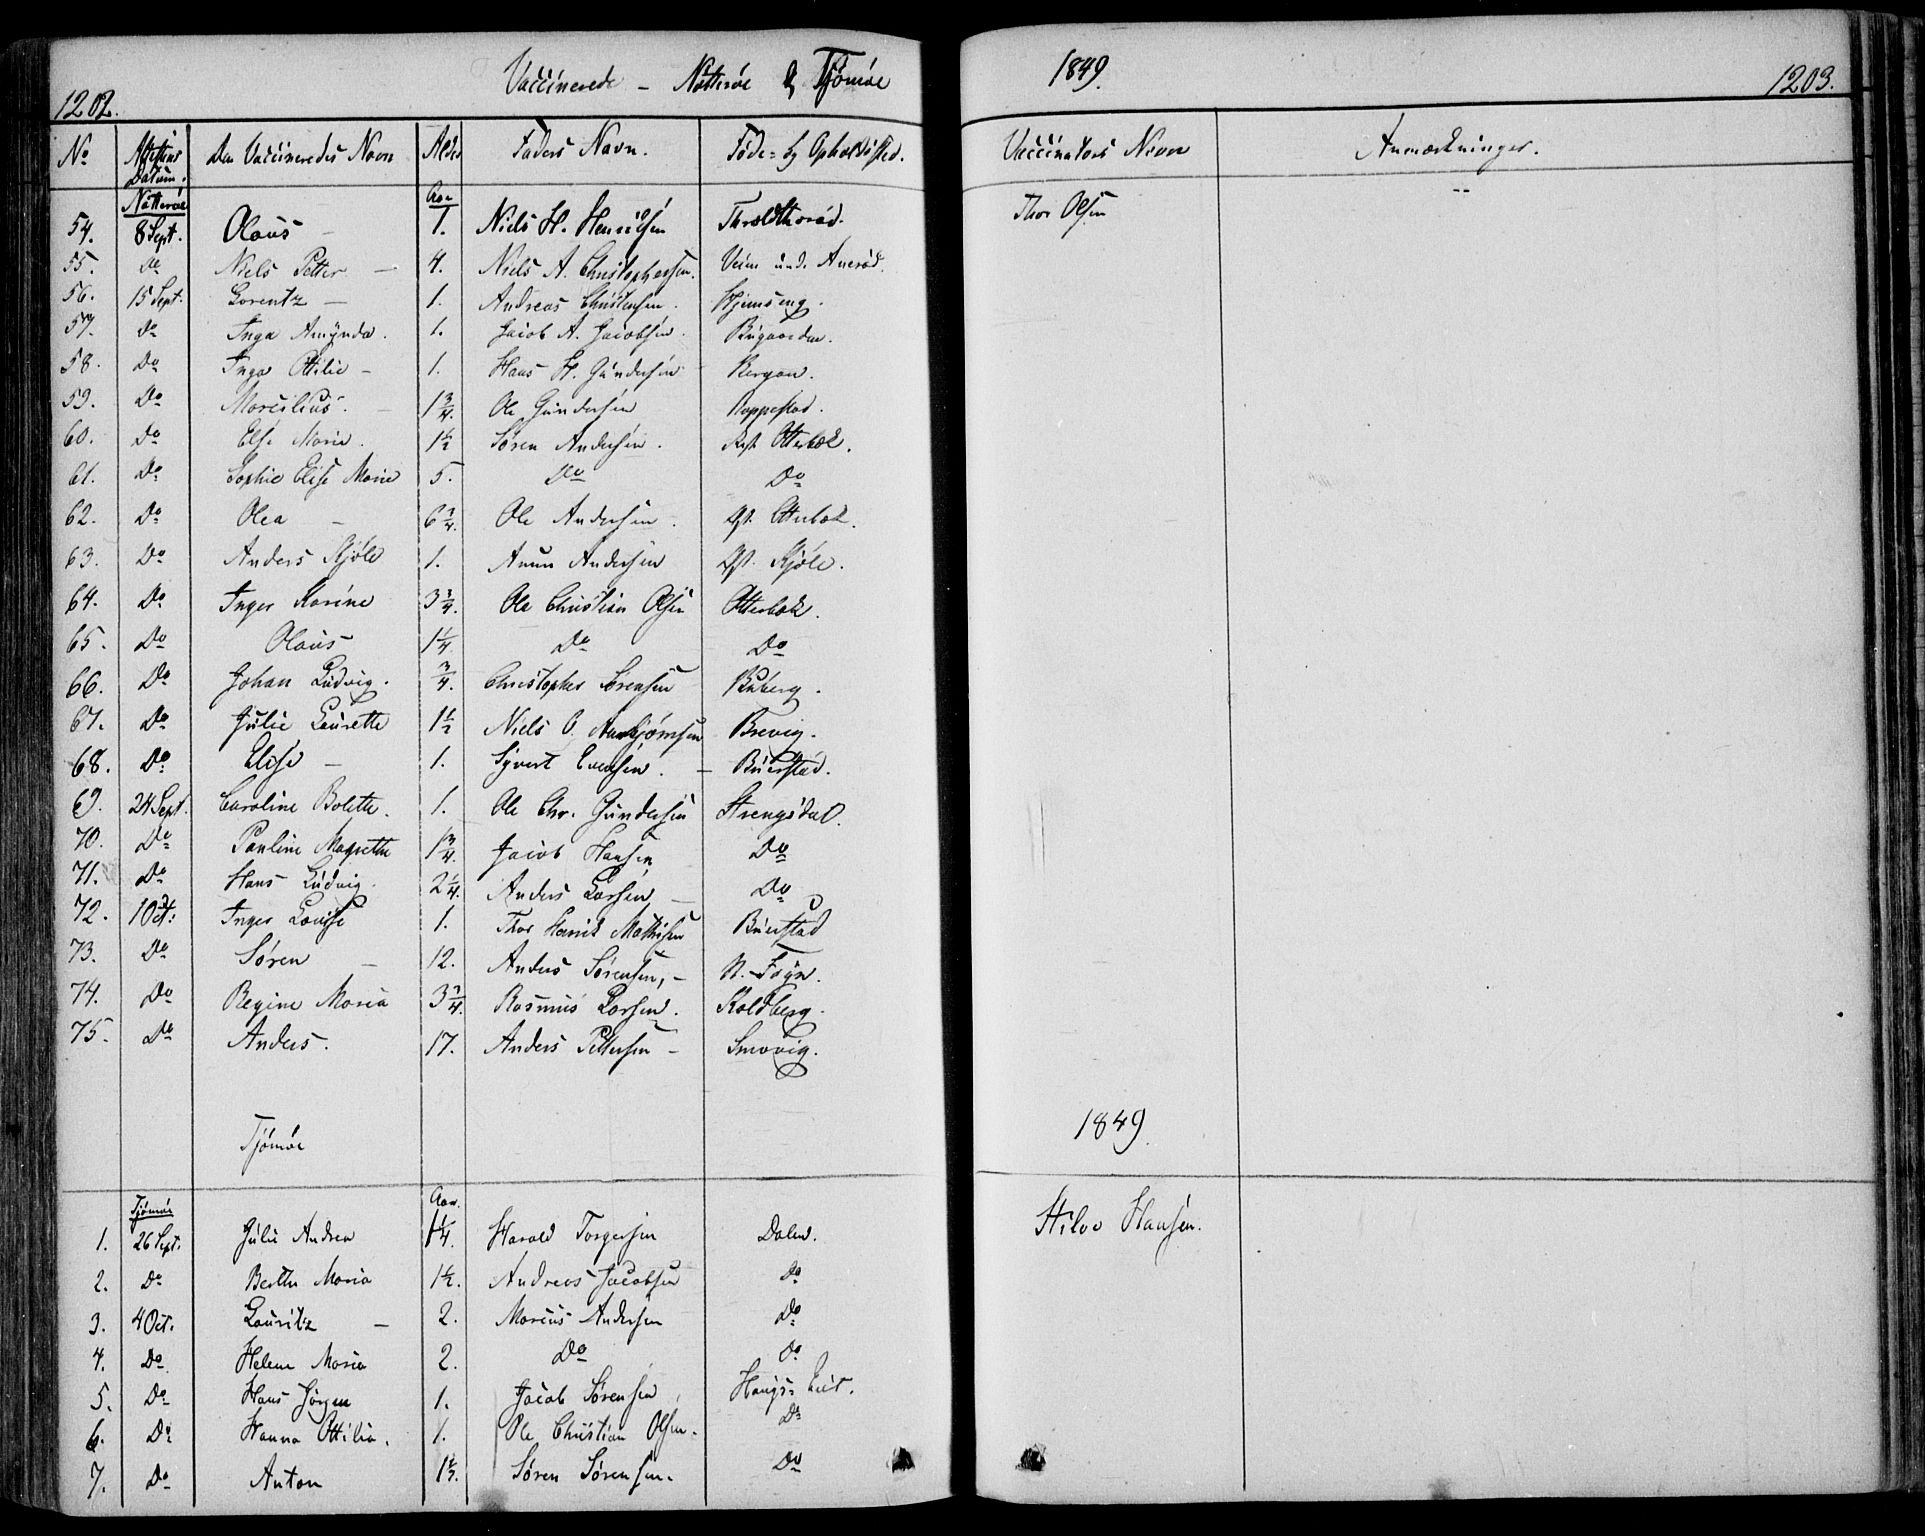 1202.
Vaccinerede – Nötteröe & Tjömöe
1849.
1203.
No | Attestens Datum. | Den Vaccineredes Navn | Alder | Faders Navn. | Føde- og Opholdssted. | Vaccinators Navn | Anmærkninger.
Nötteröe | Aar
54. | 8 Sept. | Olaus – | 1. | Niels H. Henriksen | | Thor Olsen
55. | Do | Niels Petter – | 4. | Niels A. Christophersen. | 
56. | 15 Sept. | Lorentz – | 1. | Andreas Christensen. | Hjemseng.
57. | Do | Inga Amynda. | 1. | Jacob A. Jacobsen. | Bugaarden.
58. | Do | Inga Ottilie – | 1. | Hans H. Gundersen | Bergan.
59. | Do | Marcilius. – | 1 3/4. | Ole Gundersen | Roppestad.
60. | Do | Else Marie. | 1 1/2 | Søren Andersen. | Otterbæk.
61. | Do | Sophie Elise Marie | 5. | Do | Do
62. | Do | Olea – | 6 3/4. | Ole Andersen. | Otterbæk.
63. | Do | Anders Kjöle | 1. | Anun Andersen | Kjöle.
64. | Do | Inger Karine | 3 3/4. | Ole Christian Olsen | Otterbæk.
65. | Do | Olaus | 1 1/4. | Do | Do
66. | Do | Johan Ludvig. | 3/4. | Christopher Sørensen | Buberg.
67. | Do | Julie Laurette | 1 1/2 | Niels O. Ansbjørnsen | Brevig.
68. | Do | Elise – | 1. | Syvert Evensen. – | Buerstad.
69. | 24 Sept. | Caroline Bolette. | 1. | Ole Chr. Gundersen | Strengsdal.
70. | Do | Pauline Magrethe | 1 3/4. | Jacob Hansen | Do
71. | Do | Hans Ludvig. | 2 1/4. | Anders Larsen – | Do
72. | 10 Oct: | Inger Louise | 1. | Thor Henrik Mathisen | Buerstad
73. | Do | Søren – | 12. | Anders Sørensen, – | N. Føyn.
74. | Do | Regine Maria | 3 3/4. | Rasmus Larsen. | Koldberg.
75. | Do | Anders. | 17. | Anders Pettersen – | Smovig.
Tjömöe
1849.
Tjömöe | Aar.
1. | 26 Sept. | Julie Andrea | 1 1/4. | Harald Torgersen | Dalen. | Hilve Hansen.
2. | Do | Berthe Maria | 1 1/2. | Andreas Jacobsen | Do
3. | 4 Oct. | Lauritz – | 2. | Marcus Andersen | Do
4. | Do | Helene Maria | 2. | Do | Do
5. | Do | Hans Jörgen | 1. | Jacob Sørensen |
6. | Do | Hanna Ottilia. | 1. | Ole Christian Olsen. | Do
7. | Do | Anton | 1 1/2. | Søren Sørensen. | Do